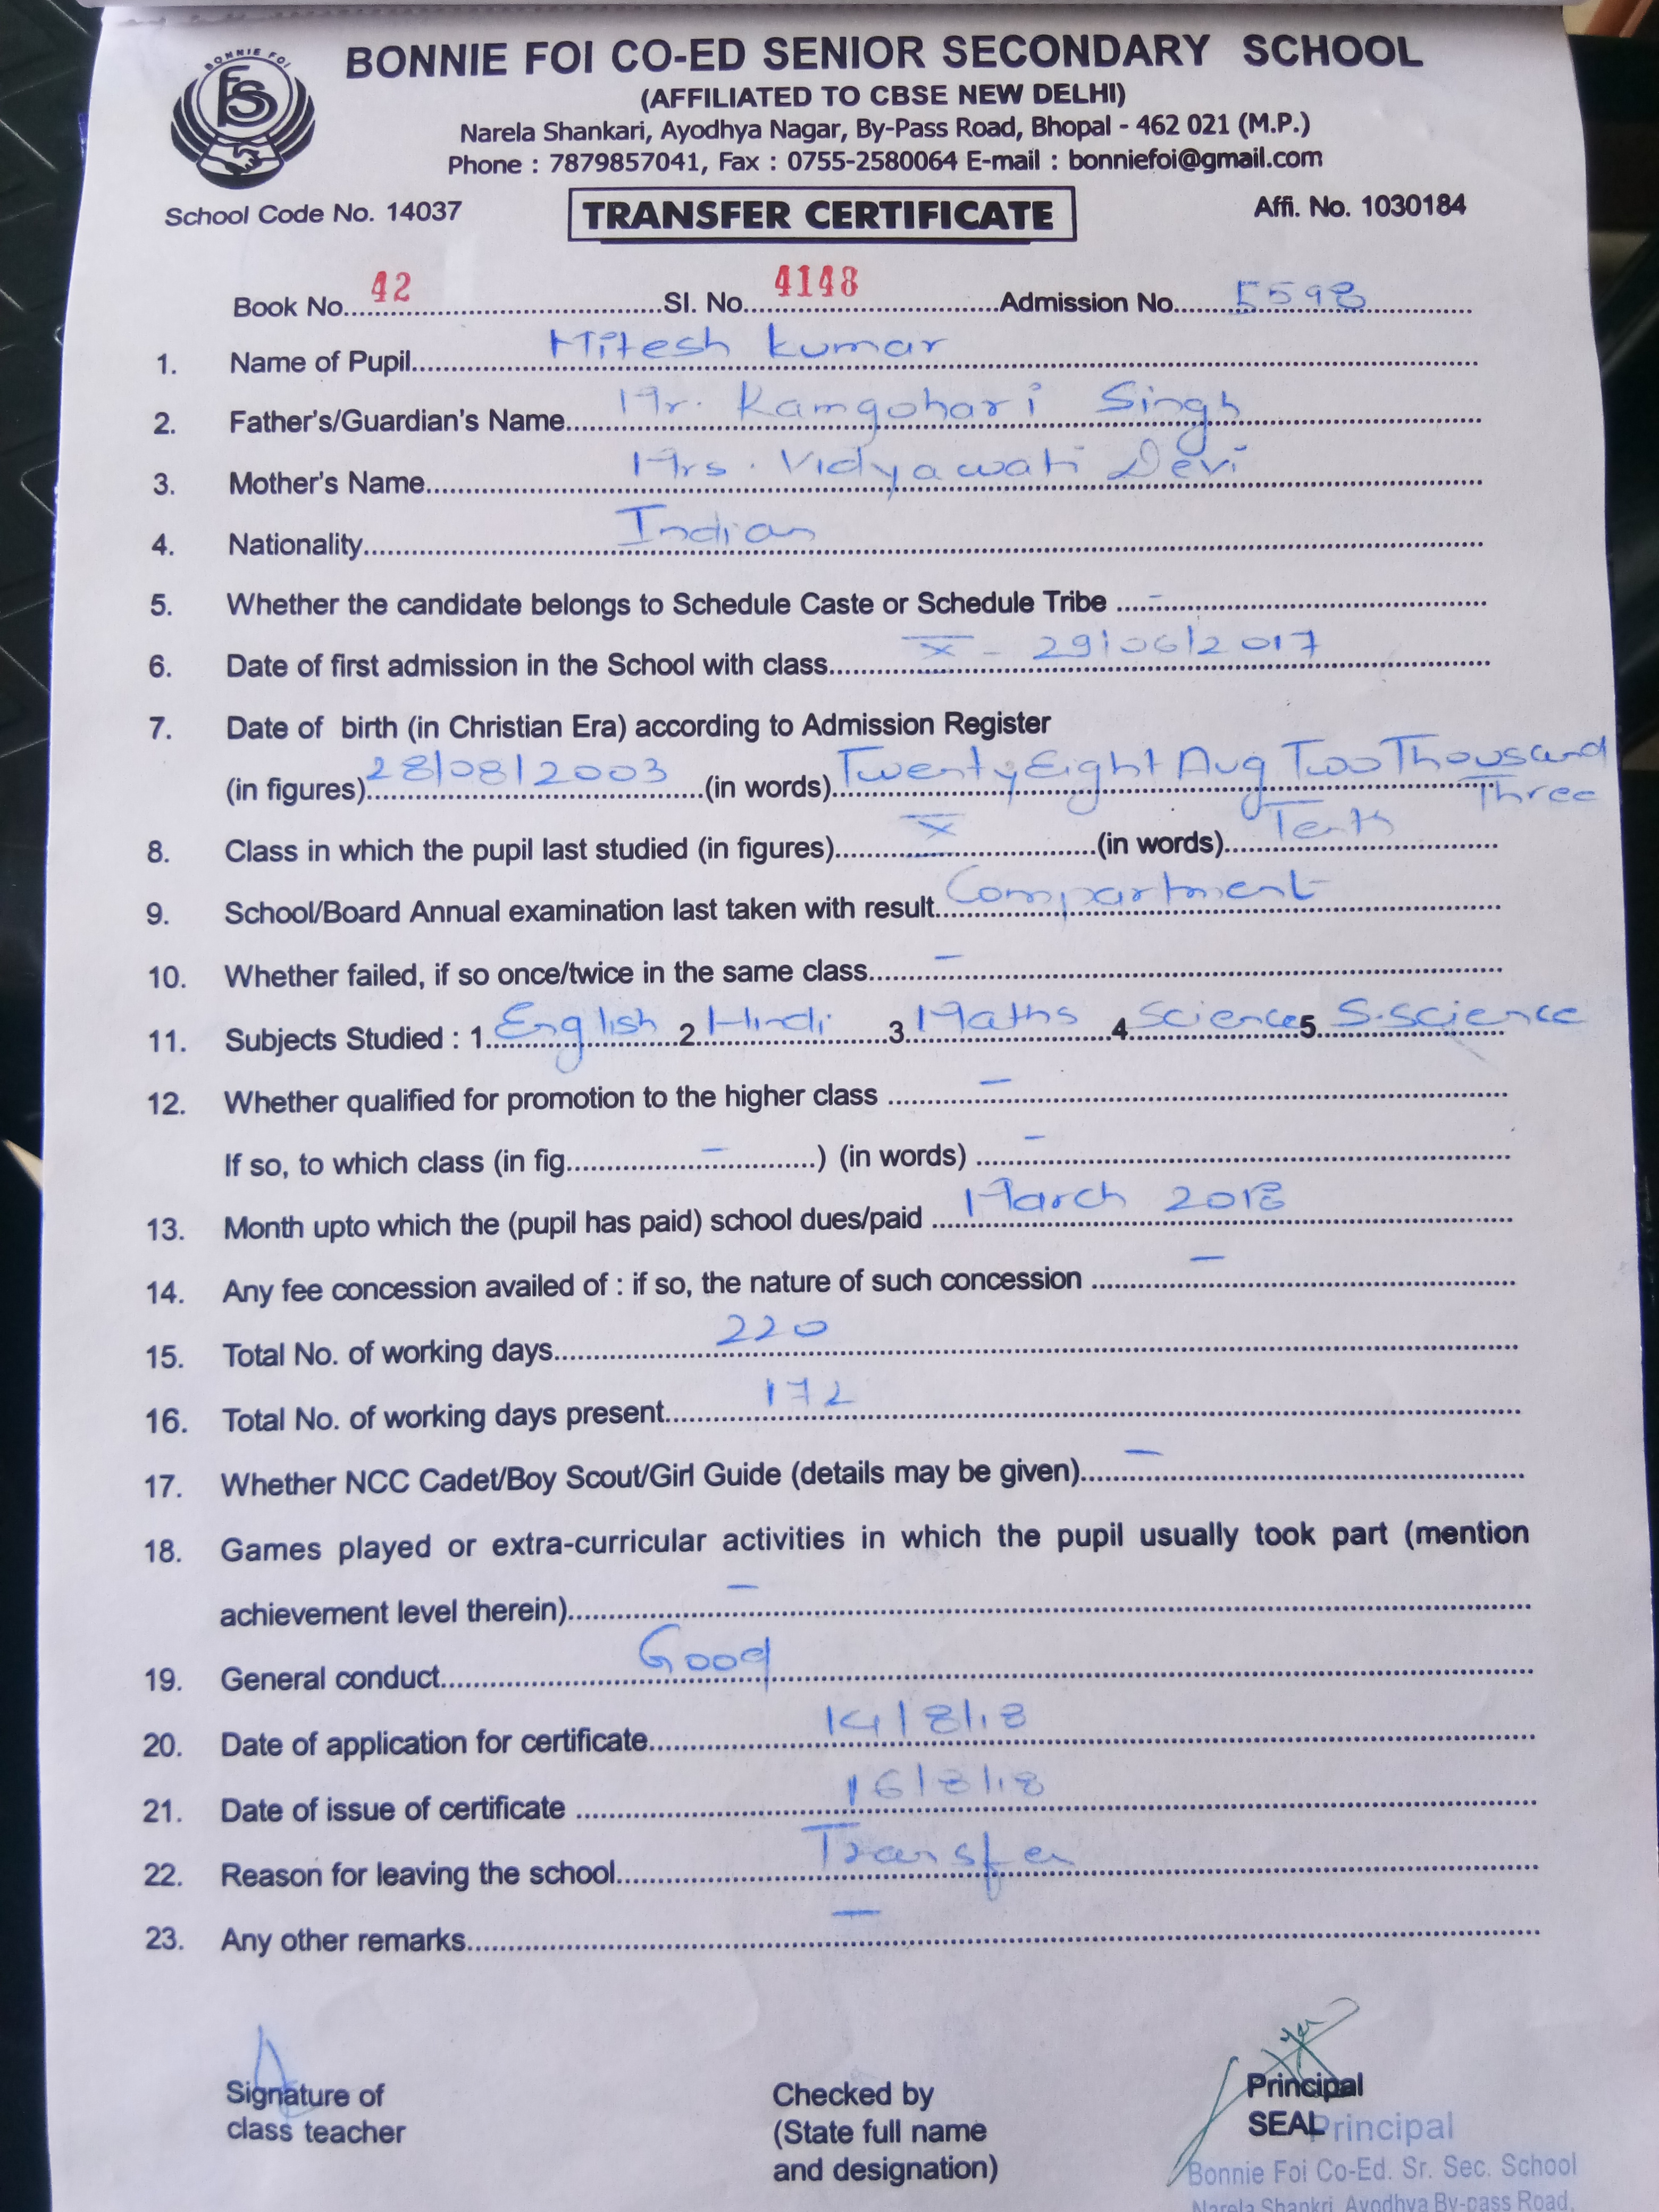 BONNIE FOI
FS
BONNIE FOI CO-ED SENIOR SECONDARY SCHOOL
(AFFILIATED TO CBSE NEW DELHI)
Narela Shankari, Ayodhya Nagar, By-Pass Road, Bhopal - 462 021 (M.P.)
Phone : 7879857041, Fax : 0755-2580064 E-mail : bonniefoi@gmail.com
School Code No. 14037 TRANSFER CERTIFICATE Affi. No. 1030184
Book No. 42 Sl. No. 4148 Admission No. 5598
1. Name of Pupil Mitesh kumar
2. Father's/Guardian's Name Mr. Ramgohari Singh
3. Mother's Name Mrs. Vidyawati Devi
4. Nationality Indian
5. Whether the candidate belongs to Schedule Caste or Schedule Tribe -
6. Date of first admission in the School with class X - 29/06/2017
7. Date of birth (in Christian Era) according to Admission Register
(in figures) 28/08/2003 (in words) Twenty Eight Aug Two Thousand
Three
8. Class in which the pupil last studied (in figures) X (in words) Tenth
9. School/Board Annual examination last taken with result Compartment
10. Whether failed, if so once/twice in the same class -
11. Subjects Studied : 1. English 2 Hindi 3 Maths 4 Science 5. S.science
12. Whether qualified for promotion to the higher class -
If so, to which class (in fig. - ) (in words) -
13. Month upto which the (pupil has paid) school dues/paid March 2018
14. Any fee concession availed of : if so, the nature of such concession -
15. Total No. of working days 220
16. Total No. of working days present 172
17. Whether NCC Cadet/Boy Scout/Girl Guide (details may be given) -
18. Games played or extra-curricular activities in which the pupil usually took part (mention
achievement level therein) -
19. General conduct Good
20. Date of application for certificate 14/8/18
21. Date of issue of certificate 16/8/18
22. Reason for leaving the school Transfer
23. Any other remarks -
Signature of Checked by Principal
class teacher (State full name SEAL Principal
and designation) Bonnie Foi Co-Ed. Sr. Sec. School
Narela Shankri, Ayodhya By-pass Road,